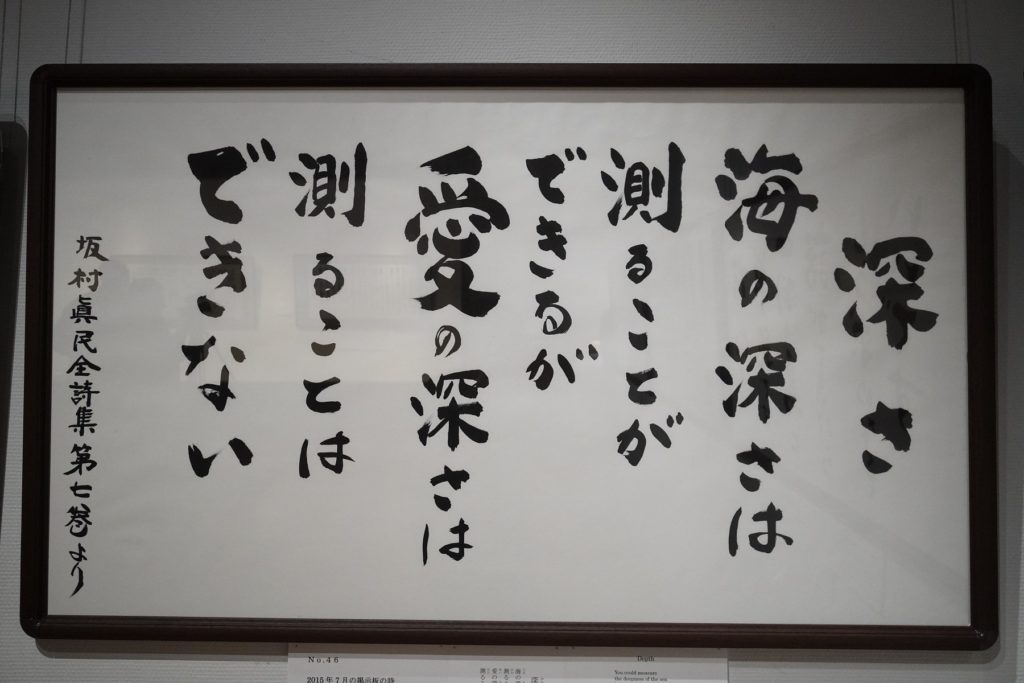 深さ
海の深さは
測ることが
できるが
愛の深さは
測ることは
できない
坂村眞民全詩集第七巻より
No.46
2015年7月の掲示板の詩
Depth
You could measure
the deepness of the sea